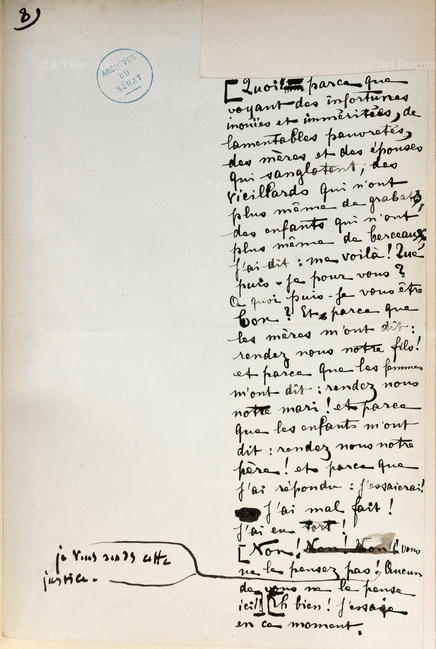 8)
ARCHIVES
DU
SÉNAT
[Quoi! parce que
voyant des infortunes
inouïes et imméritées, de
lamentables pauvretés,
des mères et des épouses
qui sanglotent, des
vieillards qui n'ont
plus même de grabats,
des enfants qui n'ont
plus même de berceaux,
j'ai dit : me voilà! Que
puis-je pour vous?
A quoi puis-je vous être
bon? Et parce que
les mères m'ont dit :
rendez nous notre fils!
et parce que les femmes
m'ont dit : rendez nous
notre mari! et parce
que les enfants m'ont
dit : rendez nous notre
père! et parce que
j'ai répondu : j'essaierai!
J'ai mal fait!
j'ai eu tort!
[Non! Non! Non! vous
ne le pensez pas! Aucun
je vous rends cette
justice.
de vous ne le pense
ici!] [Eh bien! j'essaye
en ce moment.